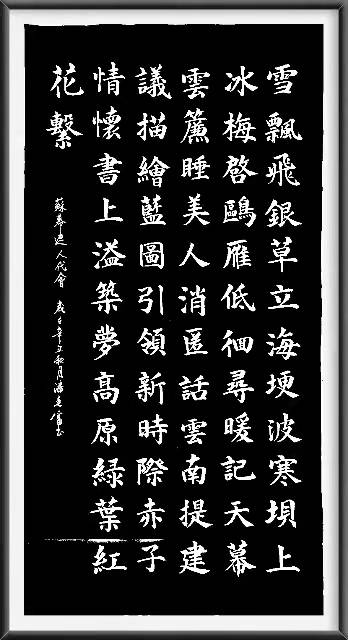 雪飄飛銀草立海埂波寒壩上
冰梅啓鷗雁低徊尋暖記天幕
雲簾睡美人消匿話雲南提建
議描繪藍圖引領新時際赤子
情懷書上溢築夢高原緑葉紅
花繫
人代會